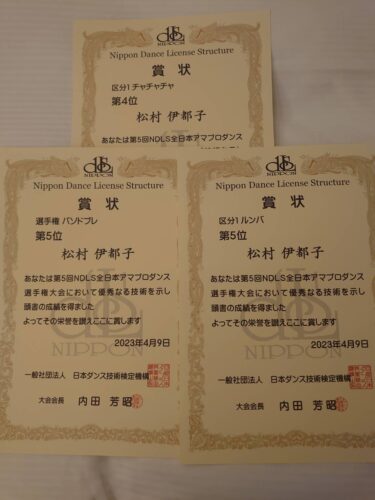 NIPPON
Nippon Dance License Structure
賞状
区分1 チャチャチャ
第4位
松村 伊都子
あなたは第5回NDLS全日本アマプロダンス
NIPPON
Nippon Dance License Structure
賞状
選手権 パソドブレ
第5位
松村 伊都子
あなたは第5回NDLS全日本アマプロダンス
選手権大会において優秀なる技術を示し
頭書の成績を得ました
よってその栄誉を讃えここに賞します
NIPPON
2023年4月9日
一般社団法人 日本ダンス技術検定機構
大会会長 内田 芳昭
NIPPON
Nippon Dance License Structure
賞状
区分1 ルンバ
第5位
松村 伊都子
あなたは第5回NDLS全日本アマプロダンス
選手権大会において優秀なる技術を示し
頭書の成績を得ました
よってその栄誉を讃えここに賞します
NIPPON
2023年4月9日
一般社団法人 日本ダンス技術検定機構
大会会長 内田 芳昭